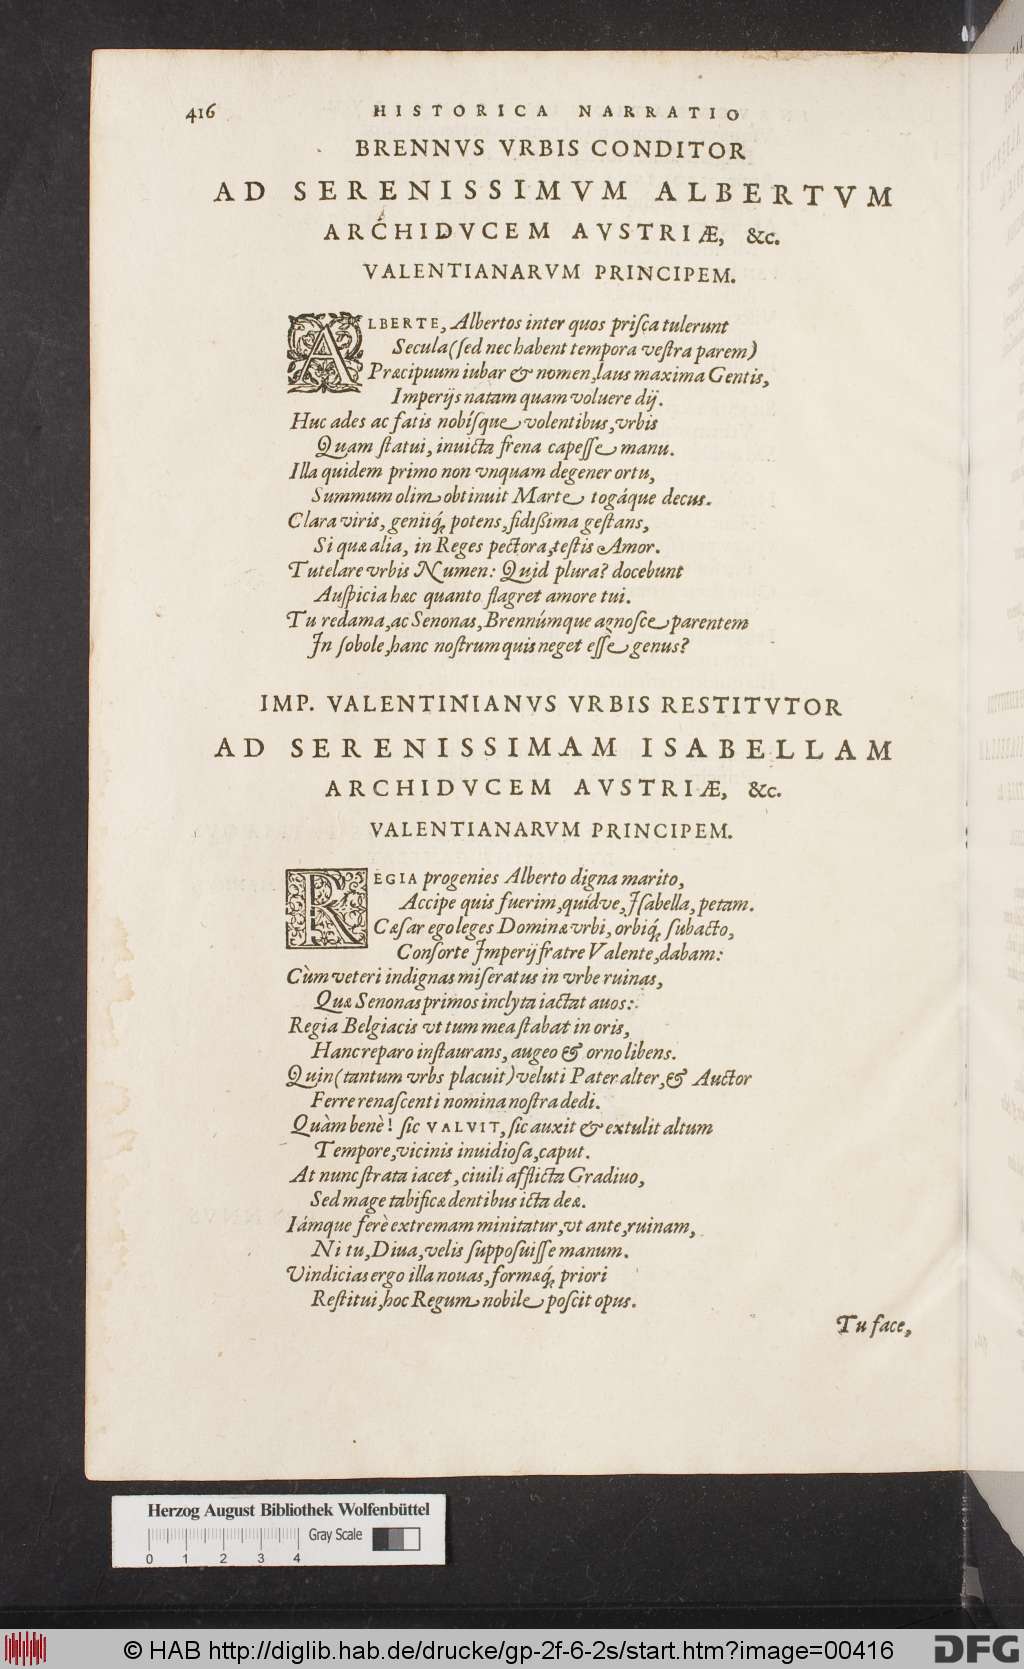 416
HISTORICA NARRATIO
BRENNVS VRBIS CONDITOR
AD SERENISSIMVM ALBERTVM
ARCHIDVCEM AVSTRIÆ, &c.
VALENTIANARVM PRINCIPEM.
ALBERTE, Albertos inter quos priſca tulerunt
Secula (ſed nec habent tempora veſtra parem)
Præcipuum iubar & nomen, laus maxima Gentis,
Imperijs natam quam voluere dij.
Huc ades ac fatis nobíſque volentibus, vrbis
Quam ſtatui, inuicta frena capeſſe manu.
Illa quidem primo non vnquam degener ortu,
Summum olim obtinuit Marte togáque decus.
Clara viris, geniiq́; potens, fidißima geſtans,
Si qua alia, in Reges pectora, teſtis Amor.
Tutelare vrbis Numen: Quid plura? docebunt
Auſpicia hæc quanto flagret amore tui.
Tu redama, ac Senonas, Brennúmque agnoſce parentem
In ſobole, hanc noſtrum quis neget eſſe genus?
IMP. VALENTINIANVS VRBIS RESTITVTOR
AD SERENISSIMAM ISABELLAM
ARCHIDVCEM AVSTRIÆ, &c.
VALENTIANARVM PRINCIPEM.
REGIA progenies Alberto digna marito,
Accipe quis fuerim, quídve, Iſabella, petam.
Cæſar ego leges Dominæ vrbi, orbiq́; ſubacto,
Conſorte Imperij fratre Valente, dabam:
Cùm veteri indignas miſeratus in vrbe ruinas,
Quæ Senonas primos inclyta iactat auos:
Regia Belgiacis vt tum mea ſtabat in oris,
Hanc reparo inſtaurans, augeo & orno libens.
Quin (tantum vrbs placuit) veluti Pater alter, & Auctor
Ferre renaſcenti nomina noſtra dedi.
Quàm benè! ſic VALVIT, ſic auxit & extulit altum
Tempore, vicinis inuidioſa, caput.
At nunc ſtrata iacet, ciuili afflicta Gradiuo,
Sed mage tabificæ dentibus icta deæ.
Iámque ferè extremam minitatur, vt ante, ruinam,
Ni tu, Diua, velis ſuppoſuiſſe manum.
Vindicias ergo illa nouas, formæq́; priori
Reſtitui, hoc Regum nobile poſcit opus.
Tu face,
Herzog August Bibliothek Wolfenbüttel
Gray Scale
0 1 2 3 4
© HAB http://diglib.hab.de/drucke/gp-2f-6-2s/start.htm?image=00416
DFG